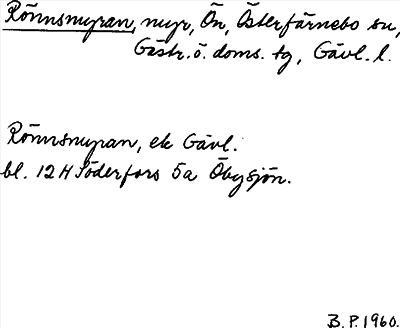 Rönnsmyran, myr, Ön, Österfärnebo sn,
Gästr. ö. doms. tg, Gävl. l.
Rönnsmyran, ek Gävl.
bl. 12H Söderfors 5a Öbysjön.
B.P. 1960.